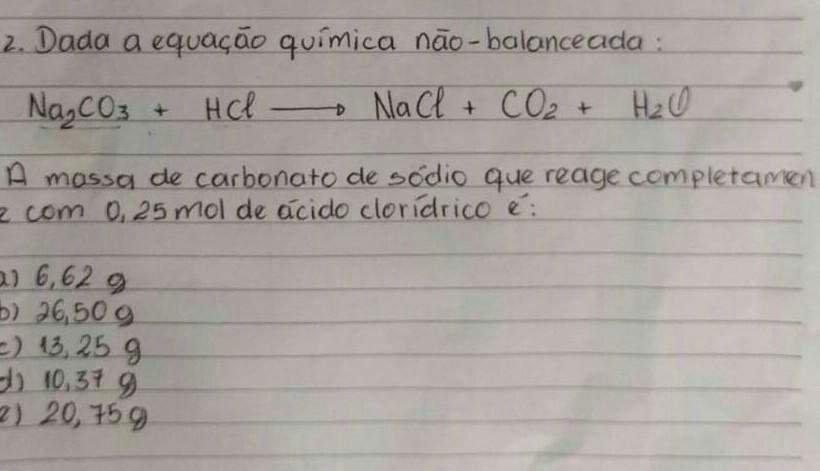 2. Dada a equação química não-balanceada:
Na₂CO₃ + HCl → NaCl + CO₂ + H₂O
A massa de carbonato de sódio que reage completamen
e com 0,25 mol de ácido clorídrico é:
a) 6,62 g
b) 26,50 g
c) 13,25 g
d) 10,37 g
e) 20,75 g